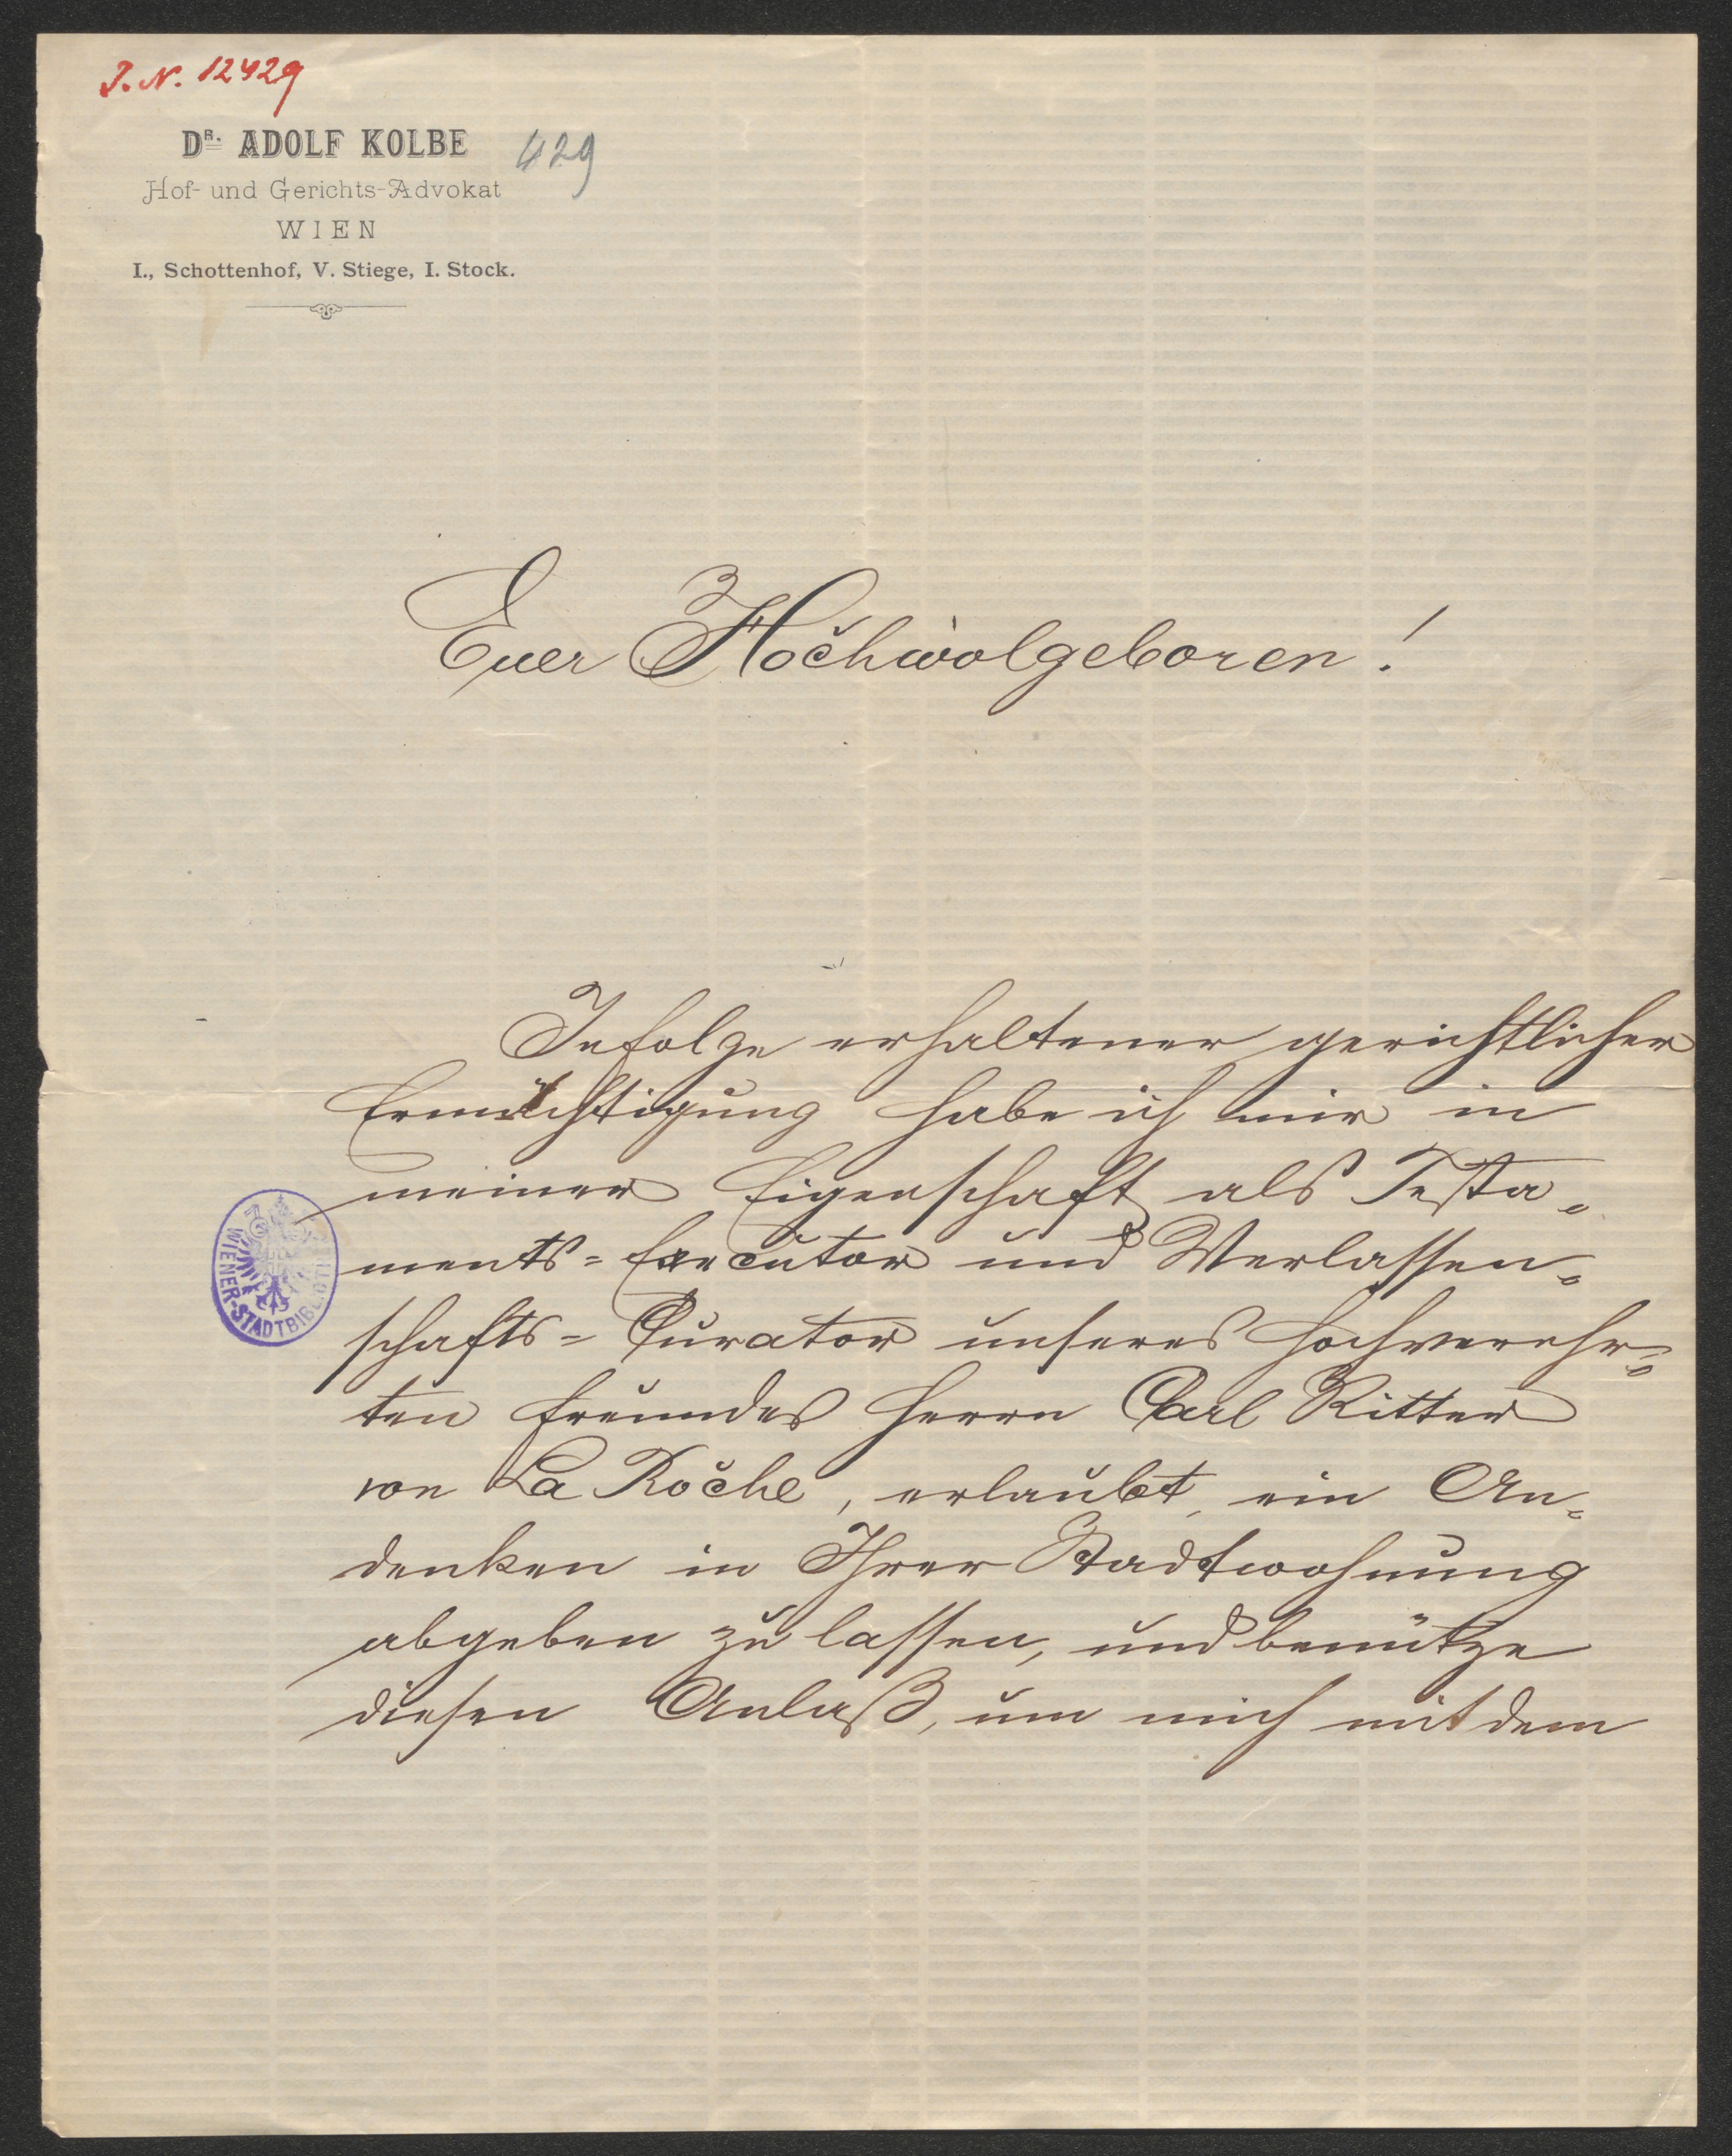 J. N. 12429
DR. ADOLF KOLBE
429
Hof- und Gerichts-Advokat
WIEN
I., Schottenhof, V. Stiege, I. Stock.
Euer Hochwolgeboren!
Infolge erhaltener gerichtlicher
Ermächtigung habe ich mir in
meiner Eigenschaft als Testa=
ments=Executor und Verlassen=
schafts=Curator unseres hochverehr=
ten Freundes Herrn Carl Ritter
von La Roche, erlaubt, ein An=
denken in Ihrer Stadtwohnung
abgeben zu lassen, und benütze
diesen Anlaß, um mich mit dem
WIENER-STADTBIBLIOTHEK